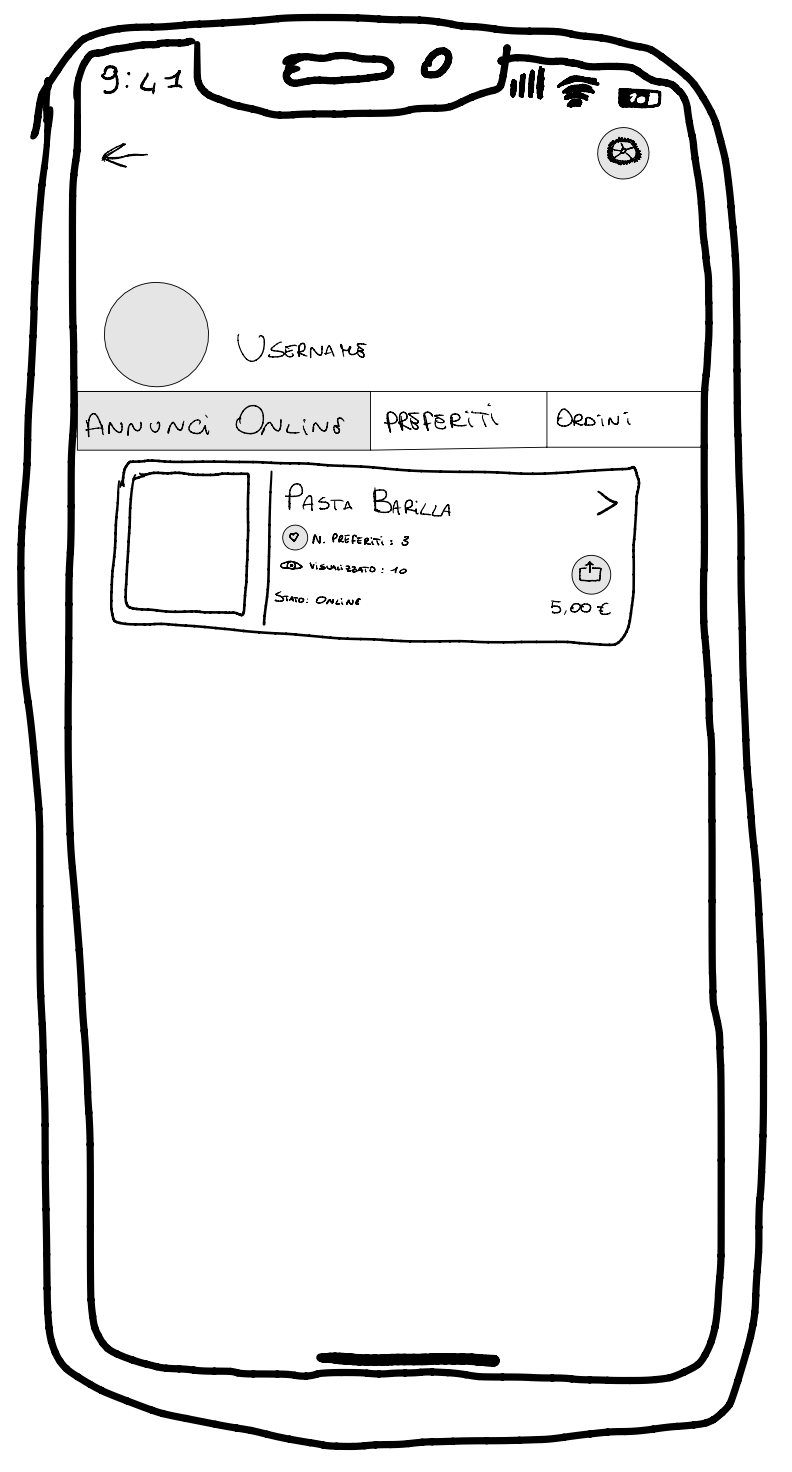 9:41
USERNAME
ANNUNCI ONLINE
PREFERITI
ORDINI
PASTA BARILLA
N. PREFERITI: 3
VISUALIZZATO: 10
STATO: ONLINE
5,00 €